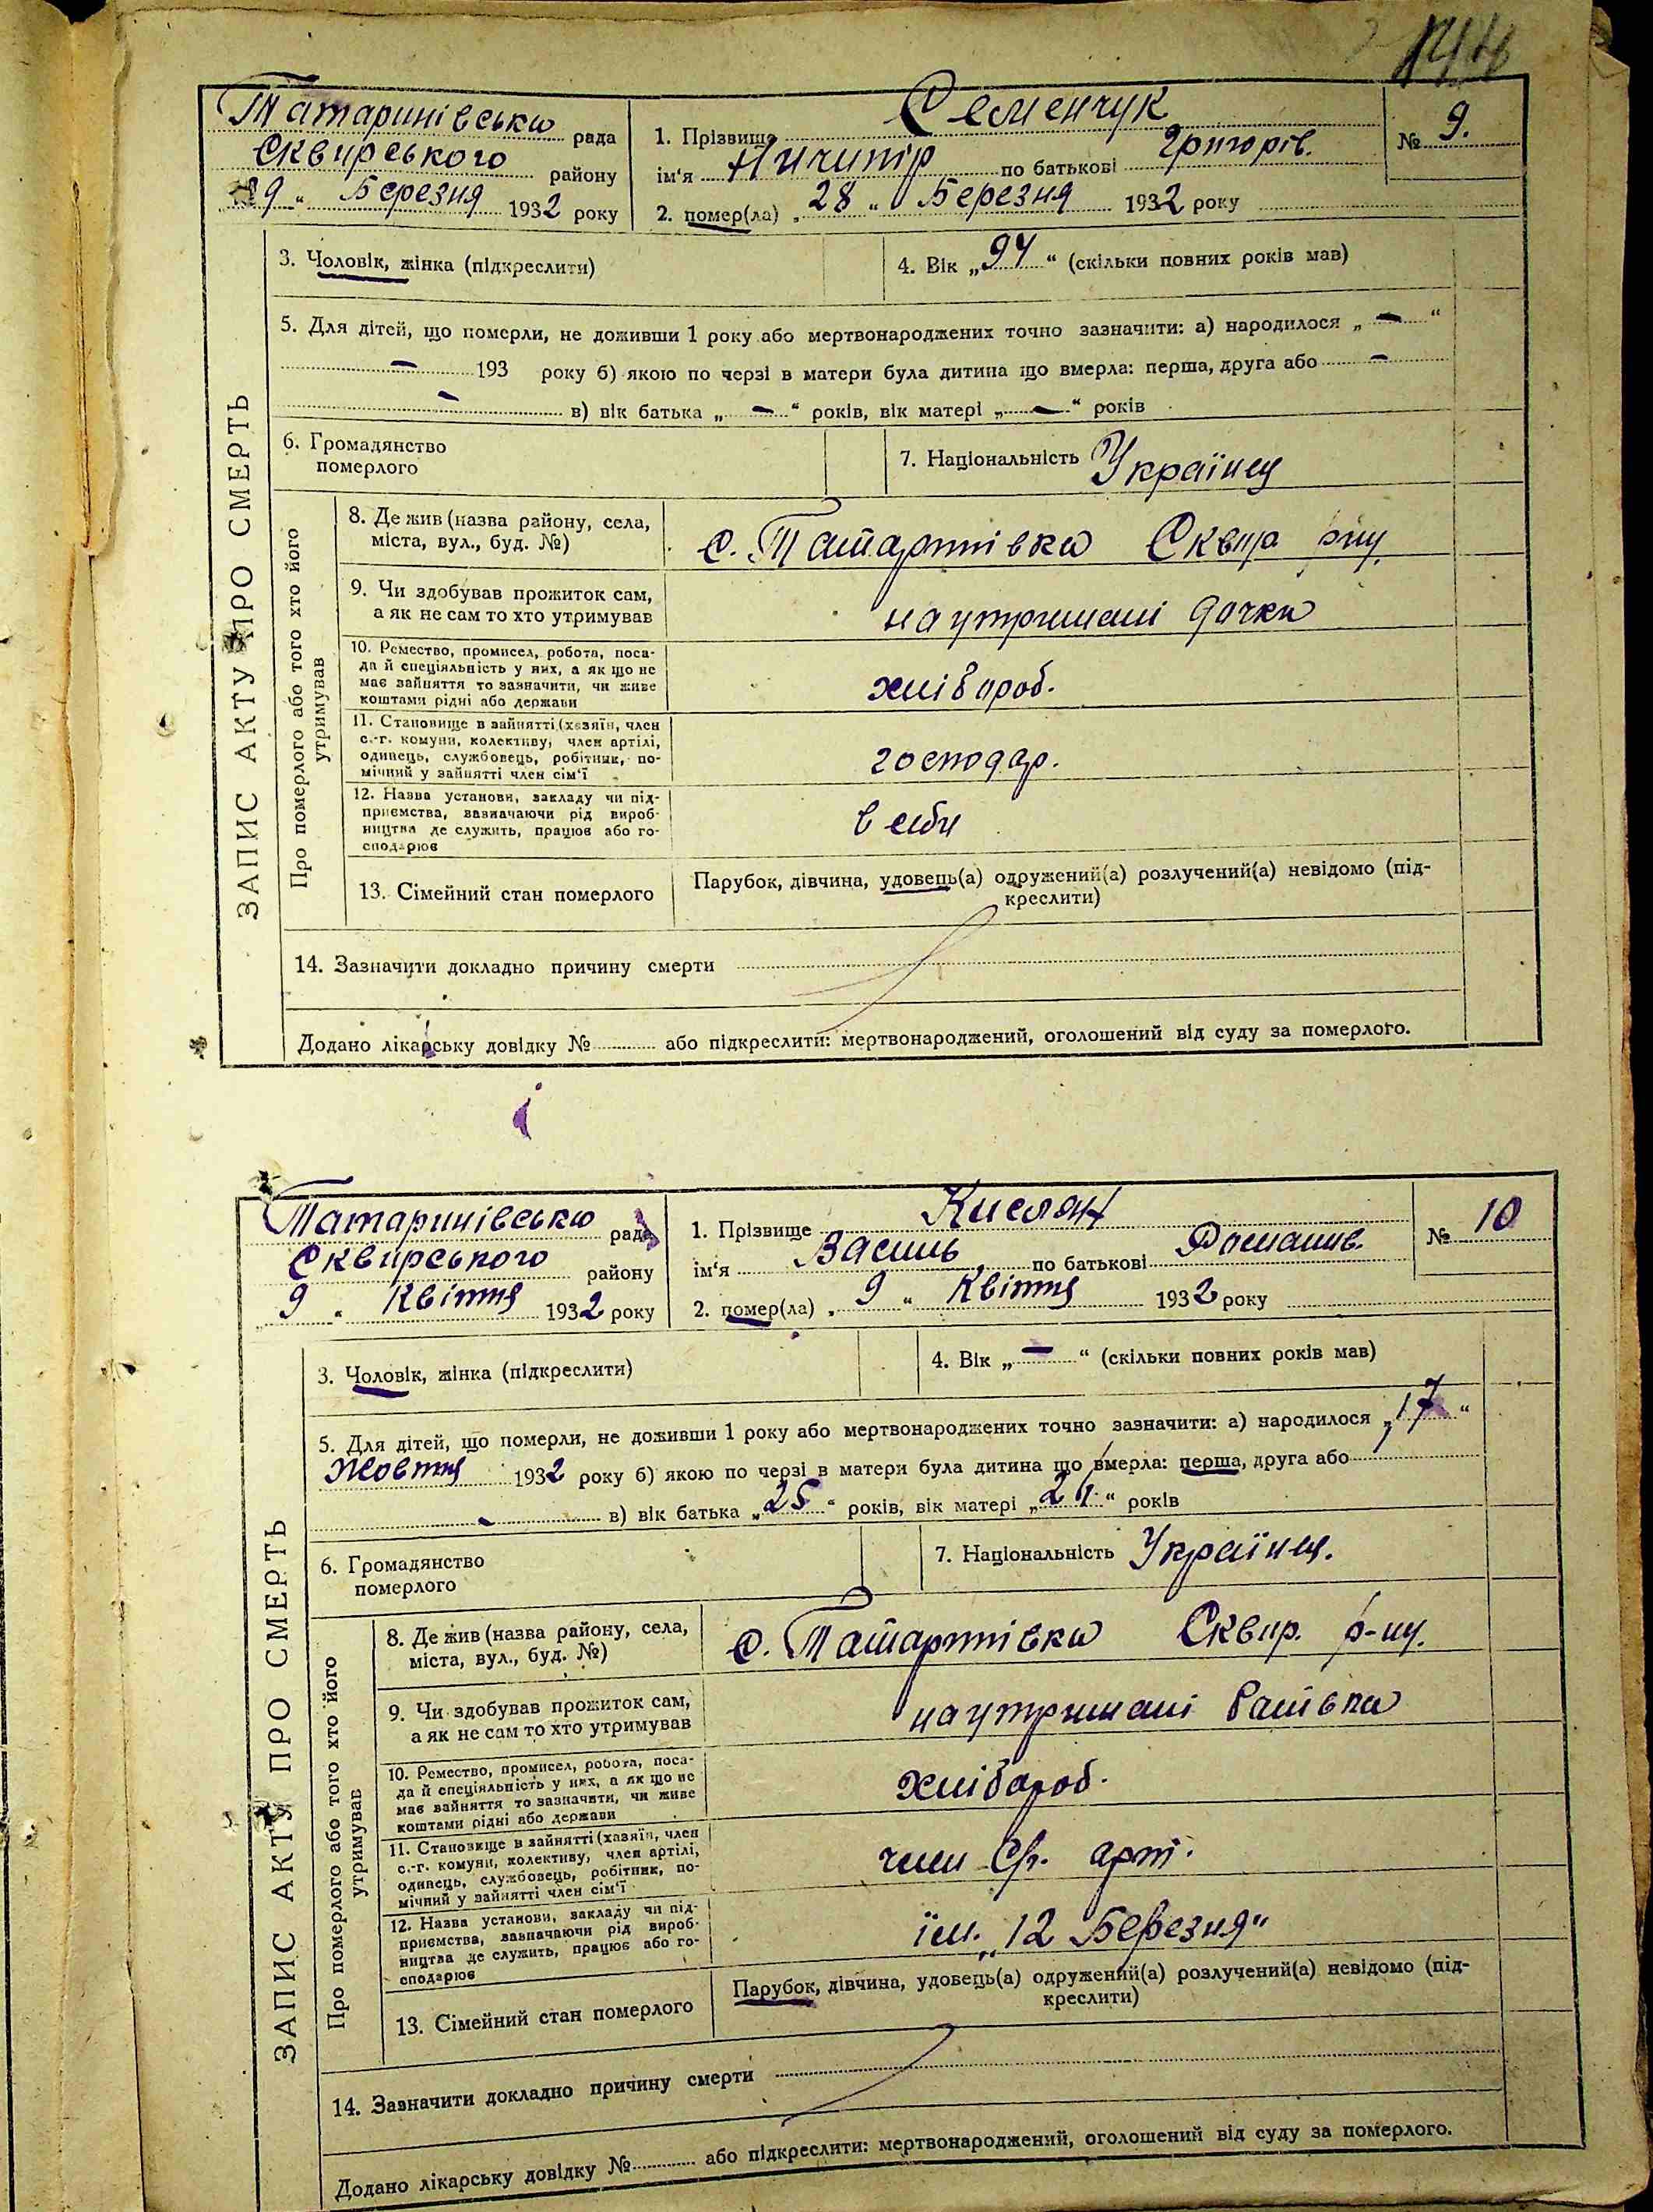 Татаринівська рада
Сквирського району
29 „ Березня 1932 року
1. Прізвище Семенчук
ім'я Ничипір по батькові Григорів.
2. помер(ла) „ 28 „ Березня 1932 року
№ 9.
ЗАПИС АКТУ ПРО СМЕРТЬ
3. Чоловік, жінка (підкреслити)
4. Вік „94“ (скільки повних років мав)
5. Для дітей, що померли, не доживши 1 року або мертвонароджених точно зазначити: а) народилося „ — “
— 193 року б) якою по черзі в матери була дитина що вмерла: перша, друга або —
— в) вік батька „ — “ років, вік матері „ — “ років
6. Громадянство
померлого
7. Національність Українец
Про померлого або того хто його
утримував
8. Де жив (назва району, села,
міста, вул., буд. №)
с. Татаринівка Сквир р-ну.
9. Чи здобував прожиток сам,
а як не сам то хто утримував
на утримані дочки
10. Ремество, промисел, робота, поса-
да й спеціяльність у них, а як що не
має зайняття то зазначити, чи живе
коштами рідні або держави
хлібороб.
11. Становище в зайнятті (хазяїн, член
с.-г. комуни, колективу, член артілі,
одинець, службовець, робітник, по-
мічний у зайнятті член сім'ї
господар.
12. Назва установи, закладу чи під-
приємства, зазначаючи рід вироб-
ництва де служить, працює або го-
сподарює
в себи
13. Сімейний стан померлого
Парубок, дівчина, удовець(а) одружений(а) розлучений(а) невідомо (під-
креслити)
14. Зазначити докладно причину смерти
Додано лікарську довідку № або підкреслити: мертвонароджений, оголошений від суду за померлого.
Татаринівська рада
Сквирського району
9 „ Квітня 1932 року
1. Прізвище Кислян
ім'я Василь по батькові Романив.
2. помер(ла) „ 9 „ Квітня 1932 року
№ 10
ЗАПИС АКТУ ПРО СМЕРТЬ
3. Чоловік, жінка (підкреслити)
4. Вік „ — “ (скільки повних років мав)
5. Для дітей, що померли, не доживши 1 року або мертвонароджених точно зазначити: а) народилося „17“
Жовтня 1932 року б) якою по черзі в матери була дитина що вмерла: перша, друга або
- в) вік батька „25“ років, вік матері „21“ років
6. Громадянство
померлого
7. Національність Українец.
Про померлого або того хто його
утримував
8. Де жив (назва району, села,
міста, вул., буд. №)
с. Татаринівка Сквир. р-ну.
9. Чи здобував прожиток сам,
а як не сам то хто утримував
на утримані батька
10. Ремество, промисел, робота, поса-
да й спеціяльність у них, а як що не
має зайняття то зазначити, чи живе
коштами рідні або держави
хлібороб.
11. Становище в зайнятті (хазяїн, член
с.-г. комуни, колективу, член артілі,
одинець, службовець, робітник, по-
мічний у зайнятті член сім'ї
член С/г. арт.
12. Назва установи, закладу чи під-
приємства, зазначаючи рід вироб-
ництва де служить, працює або го-
сподарює
їм. „12 Березня“
13. Сімейний стан померлого
Парубок, дівчина, удовець(а) одружений(а) розлучений(а) невідомо (під-
креслити)
14. Зазначити докладно причину смерти
Додано лікарську довідку № або підкреслити: мертвонароджений, оголошений від суду за померлого.